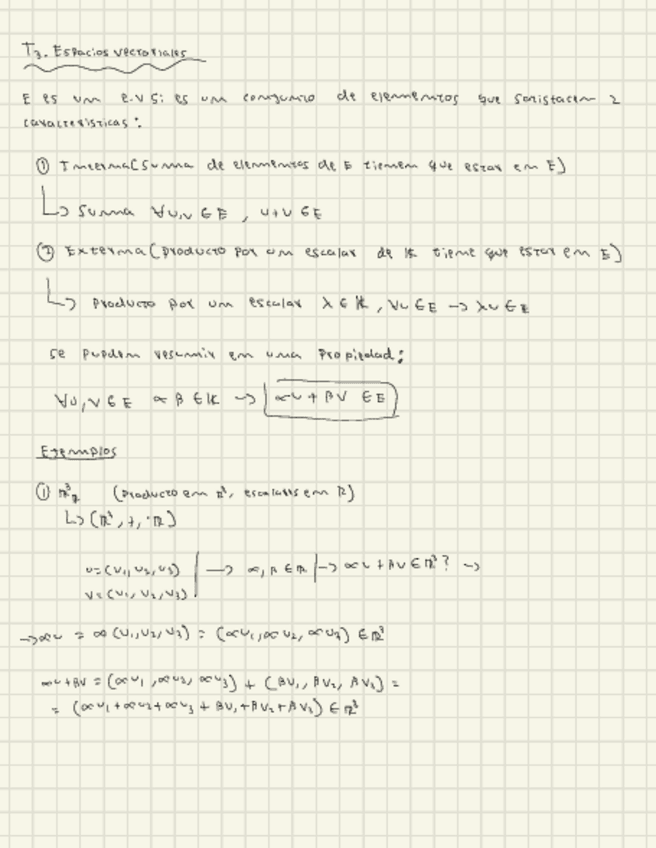 T3. Espacios vectoriales
E es un e.v si es un conjunto de elementos que satisfacen 2
características:
① Interna (suma de elementos de E tienen que estar en E)
↳ Suma ∀u,v ∈ E , u+v ∈ E
② Externa (producto por un escalar de K tiene que estar en E)
↳ Producto por un escalar λ ∈ K, ∀u ∈ E → λu ∈ E
se pueden resumir en una propiedad:
∀u,v ∈ E α β ∈ K → αu + βv ∈ E
Ejemplos
① ℝ³ℝ (Producto en ℝ³, escalares en ℝ)
↳ (ℝ³, +, ·ℝ)
u=(u1,u2,u3) | → α,β ∈ ℝ | → αu + βv ∈ ℝ³? →
v=(v1,v2,v3)
→ αu = α(u1,u2,u3) = (αu1,αu2,αu3) ∈ ℝ³
αu+βv = (αu1,αu2,αu3) + (βv1,βv2,βv3) =
= (αu1+αu2+αu3+βv1+βv2+βv3) ∈ ℝ³